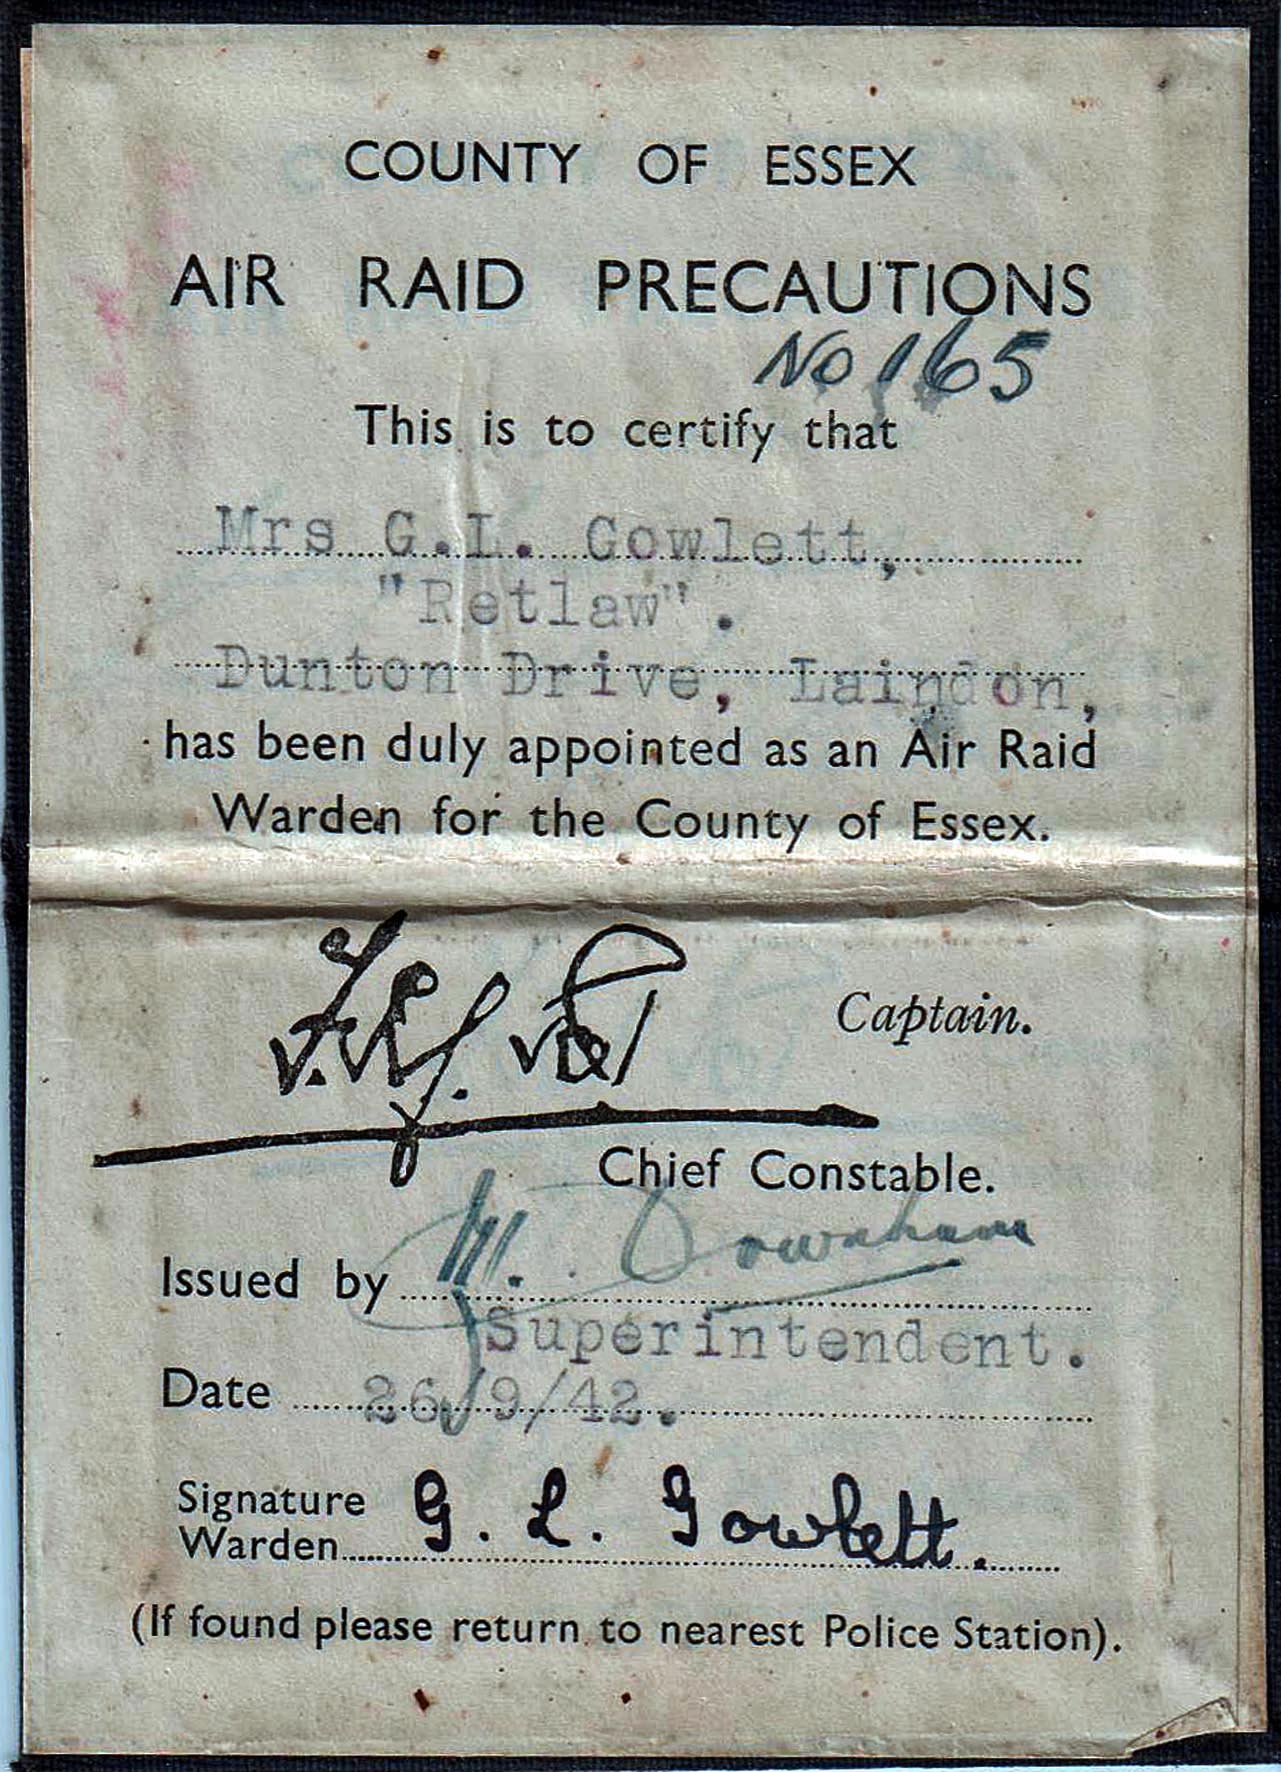 COUNTY OF ESSEX
AIR RAID PRECAUTIONS
No 165
This is to certify that
Mrs G.L. Gowlett,
"Retlaw".
Dunton Drive, Laindon,
has been duly appointed as an Air Raid
Warden for the County of Essex.
Captain.
Chief Constable.
Issued by
Superintendent.
Date 26/9/42.
Signature
Warden G. L. Gowlett.
(If found please return to nearest Police Station).